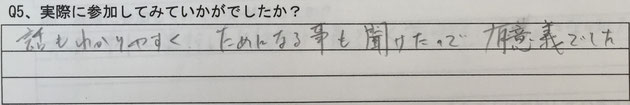 Q5、実際に参加してみていかがでしたか？
話もわかりやすく ためになる事も聞けたので 有意義でした